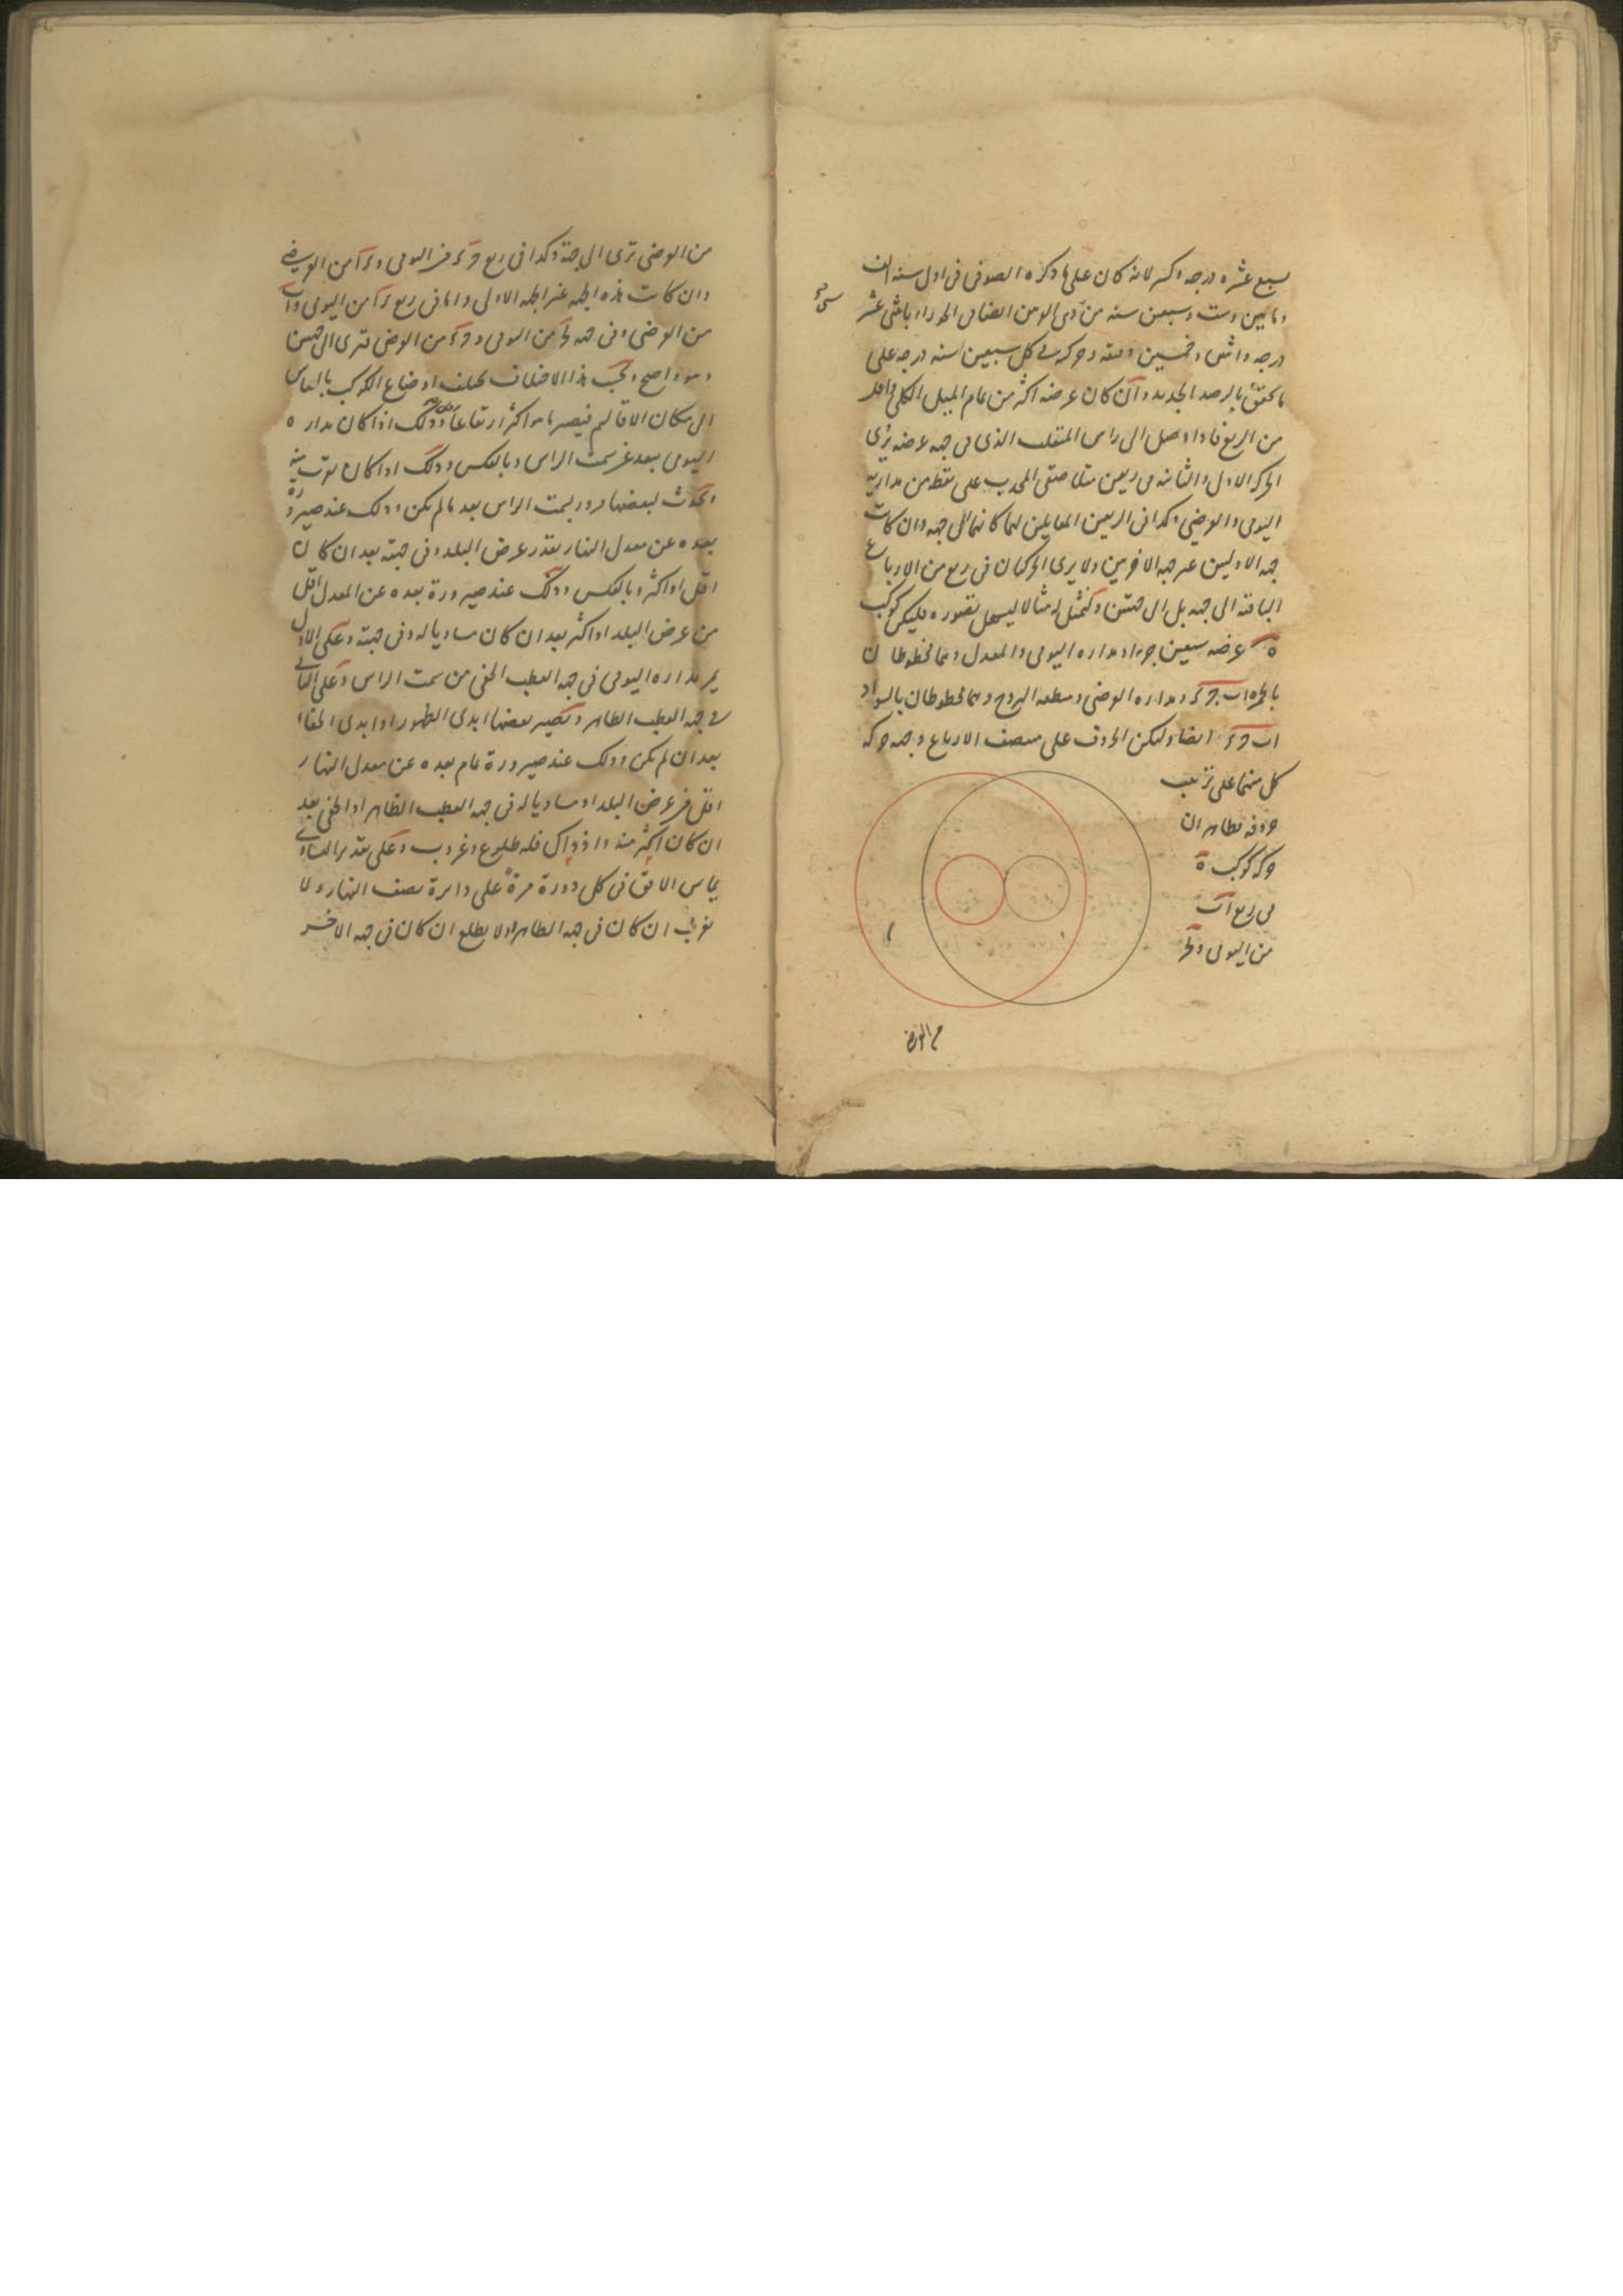 سبع عشره درجه وكسر لانه كان على ما ذكره الصوفى فى اول سنه الف
و مايتين وست وسبعين سنه من ذى القرنين الجوزاء باثنتى عشر
درجه واثنين وخمسين دقيقه وحركه فى كل سبعين سنه درجه على
ما تحقق بالرصد الجديد وان كان عرضه اكثر من تمام الميل الكلى واقل
من الربع فاذا وصل الى راس المنقلب الذى فى جهه عرضه يرى
الحركه الاولى والثانيه فى ربعين متلاصقى المحدب على نقطه من مداريه
اليومى والعرضى وكذا فى الربعين المقابلين لهما كانهما الى جهه وان كانت
جهه الاوليين غير جهه الاخريين ولا يرى الحركتان فى ربع من الارباع
الباقيه الى جهه بل الى جهتين ولنمثل له مثالا ليسهل تصوره فليكن كوكب
ه عرضه سبعين جزءا ومداره اليومى والمعدل وهما مخطوطان
بالحمره اب ج د ومداره العرضى ومنطقه البروج وهما مخطوطان بالسواد
اب ج د ايضا ولتكن الحروف على منتصف الارباع وجهه حركه
كل منهما على ترتيب
حروفه فظاهر ان
حركه كوكب ه
فى ربع اب
من اليومى و
من العرضى
من العرضى ترى الى جهة وكذا فى ربع ج د من اليومى و د ا من العرضى
وان كانت هذه الجهه غير الجهه الاولى واما فى ربع د ا من اليومى و اب
من العرضى وفى جهه ب ج من اليومى و ج د من العرض فترى الى جهتين
وهو واضح وبحسب هذا الاختلاف يختلف اوضاع الكوكب بالقياس
الى سكان الاقاليم فيصير ما هو اكثر ارتفاعا اقل وذلك اذا كان مداره
اليومى يبعد عن سمت الراس وبالعكس وذلك اذا كان يقرب منه
ويحدث لبعضها مرور بسمت الراس بعد ما لم يكن وذلك عند صيرورة
بعده عن معدل النهار بقدر عرض البلد وفى جهته بعد ان كان
اقل او اكثر وبالعكس وذلك عند صيرورة بعده عن المعدل اقل
من عرض البلد او اكثر بعد ان كان مساويا له وفى جهته وعلى الاول
يمر مداره اليومى فى جهه القطب الخفى من سمت الراس وعلى الثانى
فى جهه القطب الظاهر ويصير بعضها ابدى الظهور او ابدى الخفاء
بعد ان لم يكن وذلك عند صيرورة تمام بعده عن معدل النهار
اقل من عرض البلد او مساويا له فى جهه القطب الظاهر او الخفى بعد
ان كان اكثر منه واذ ذاك فله طلوع وغروب وعلى تقدير التساوى
يماس الافق فى كل دورة مرة على دائرة نصف النهار ولا
يغرب ان كان فى جهه الظاهر ولا يطلع ان كان فى جهه الاخر